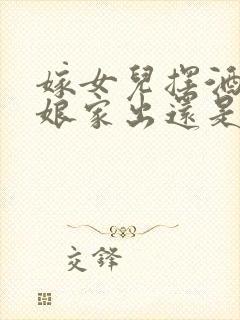 嫁女兒擺酒
娘家出還是
交鋒